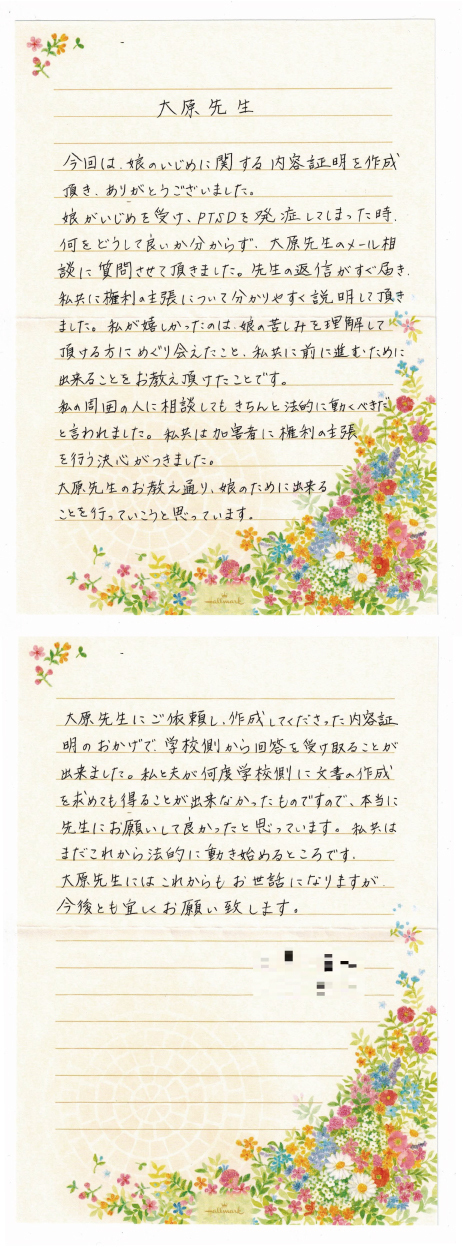 大原先生
今回は、娘のいじめに関する内容証明を作成
頂き、ありがとうございました。
娘がいじめを受け、PTSDを発症してしまった時、
何をどうして良いか分からず、大原先生のメール相
談に質問させて頂きました。先生の返信がすぐ届き、
私共に権利の主張について分かりやすく説明して頂き
ました。私が嬉しかったのは、娘の苦しみを理解して
頂ける方にめぐり会えたこと、私共に前に進むために
出来ることをお教え頂けたことです。
私の周囲の人に相談してもきちんと法的に動くべきだ
と言われました。私共は加害者に権利の主張
を行う決心がつきました。
大原先生のお教え通り、娘のために出来る
ことを行っていこうと思っています。
Hallmark
大原先生にご依頼し、作成してくださった内容証
明のおかげで学校側から回答を受け取ることが
出来ました。私と夫が何度学校側に文書の作成
を求めても得ることが出来なかったものですので、本当に
先生にお願いして良かったと思っています。私共は
まだこれから法的に動き始めるところです。
大原先生にはこれからもお世話になりますが、
今後とも宜しくお願い致します。
Hallmark